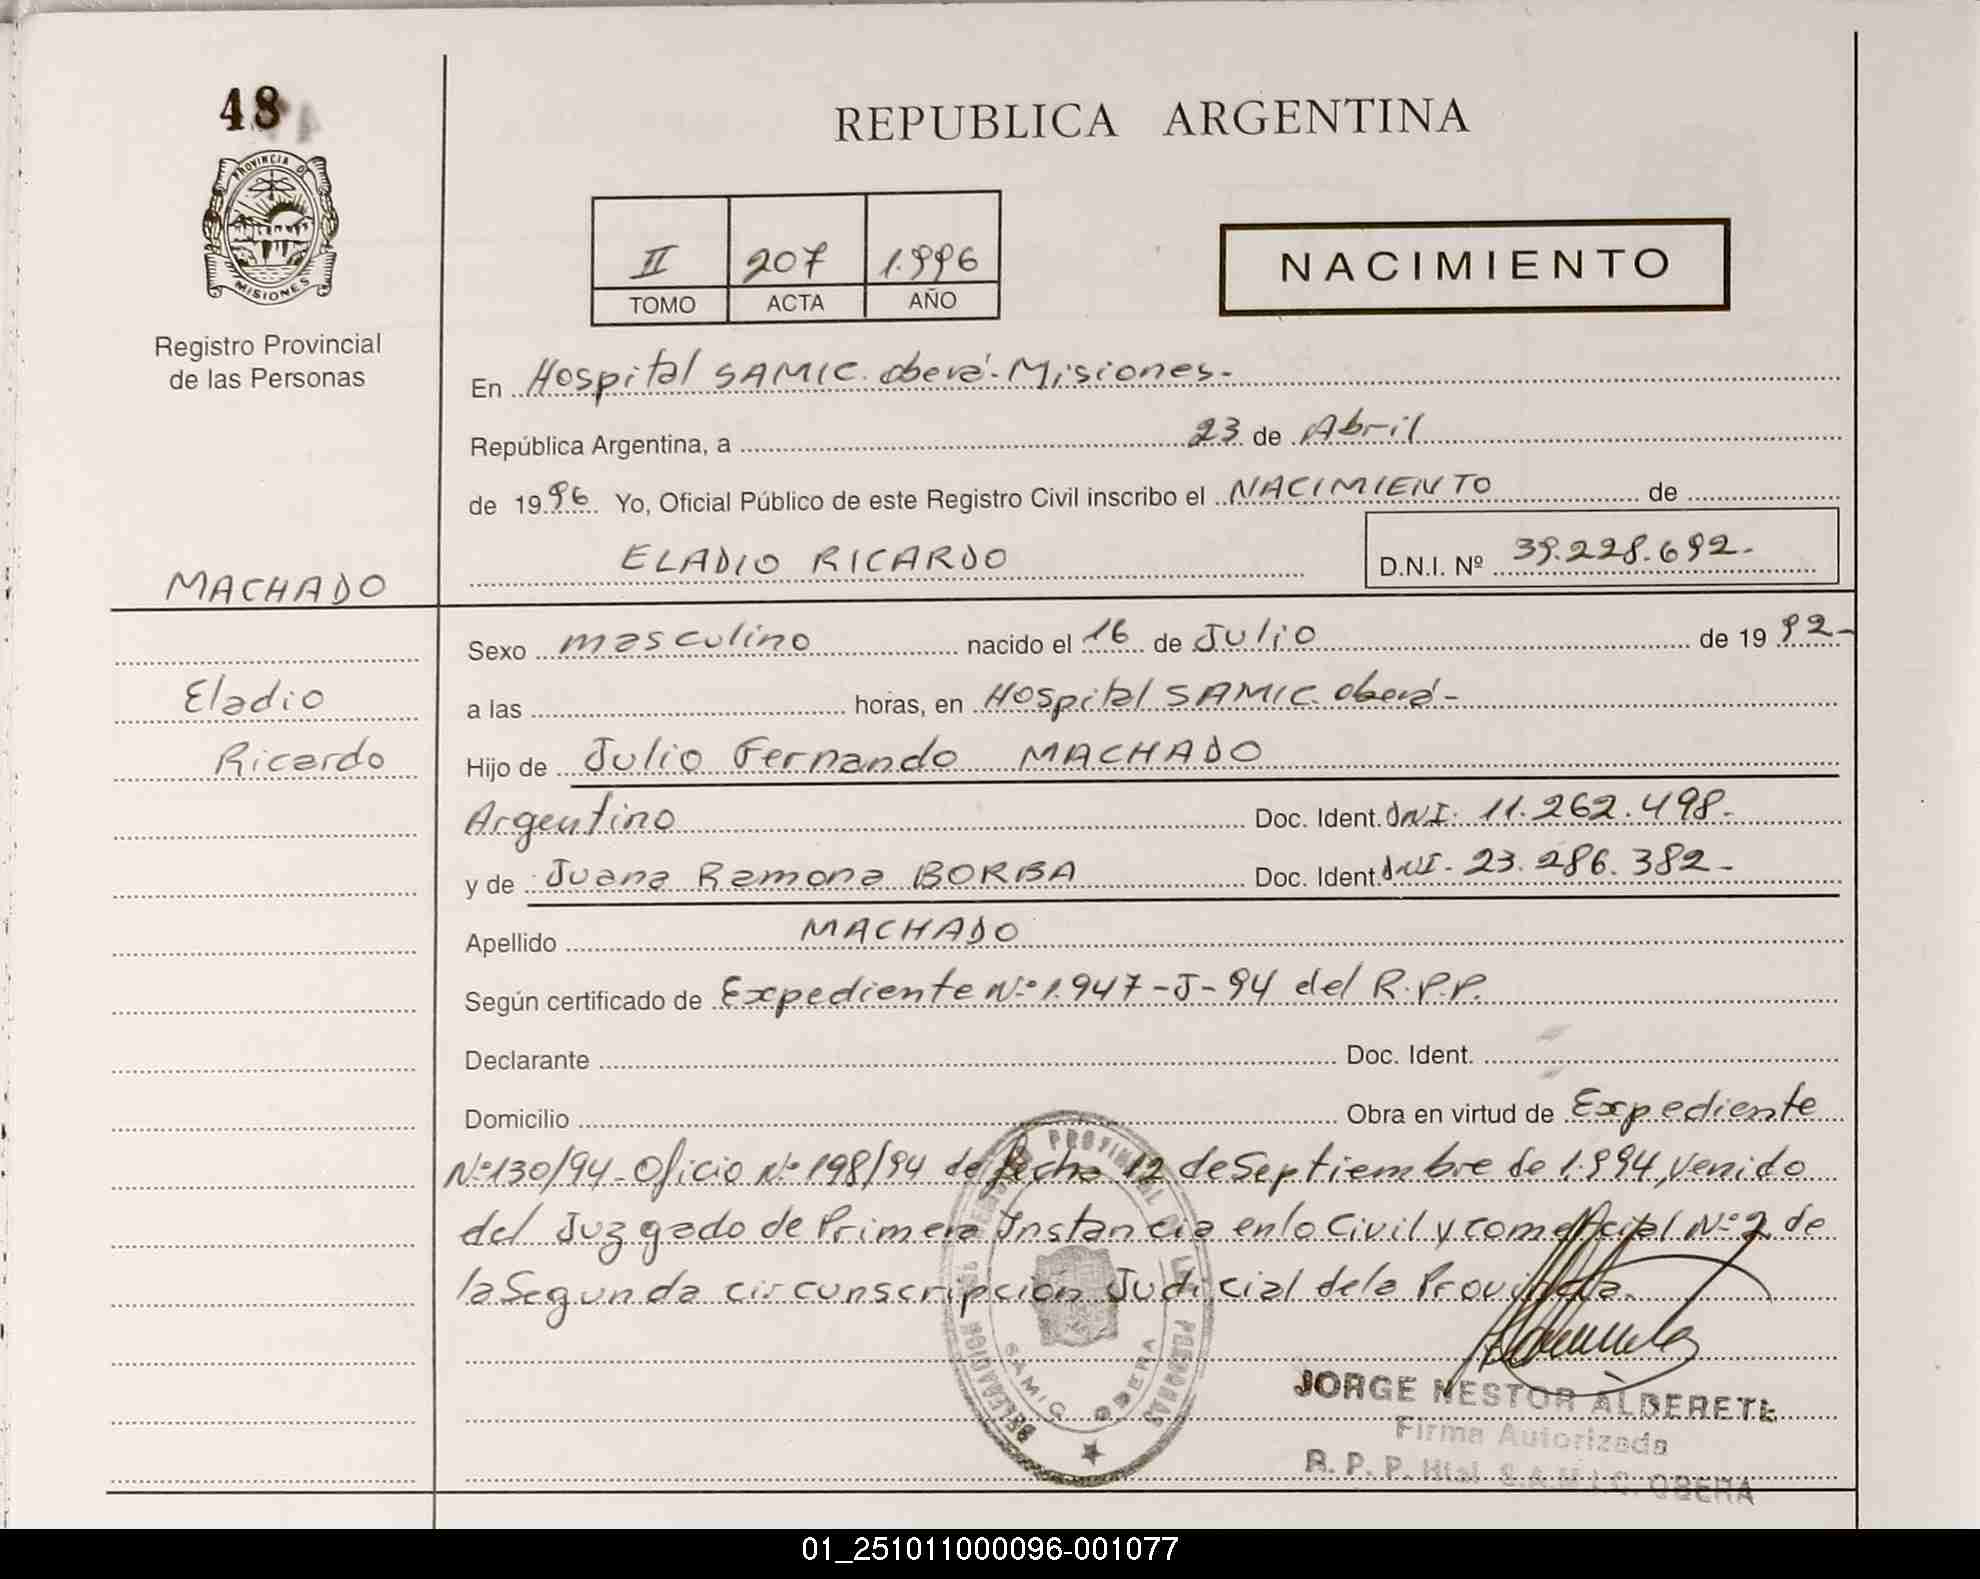 48
PROVINCIA DE
MISIONES
Registro Provincial
de las Personas
MACHADO
Eladio
Ricardo
REPUBLICA ARGENTINA
II 207 1.996
TOMO ACTA AÑO
NACIMIENTO
En Hospital SAMIC. oberá-Misiones-
República Argentina, a 23 de Abril
de 1996 Yo, Oficial Público de este Registro Civil inscribo el NACIMIENTO de
ELADIO RICARDO D.N.I. Nº 39.228.692-
Sexo masculino nacido el 16 de Julio de 1992-
a las horas, en Hospital SAMIC. oberá-
Hijo de Julio Fernando MACHADO
Argentino Doc. Ident. DNI. 11.262.498-
y de Juana Ramona BORBA Doc. Ident. DNI- 23.286.382-
Apellido MACHADO
Según certificado de Expediente Nº 1.947-J-94 del R.P.P.
Declarante Doc. Ident.
Domicilio Obra en virtud de Expediente
Nº 130/94-Oficio Nº 198/94 de fecha 12 de Septiembre de 1.994, venido
del Juzgado de Primera Instancia en lo Civil y comercial Nº 2 de
la Segunda circunscripción Judicial de la Provincia.
SAMIC OBERA
JORGE NESTOR ALDERETE
Firma Autorizada
R. P. P. Htal. S.A.M.I.C. OBERA
01_251011000096-001077